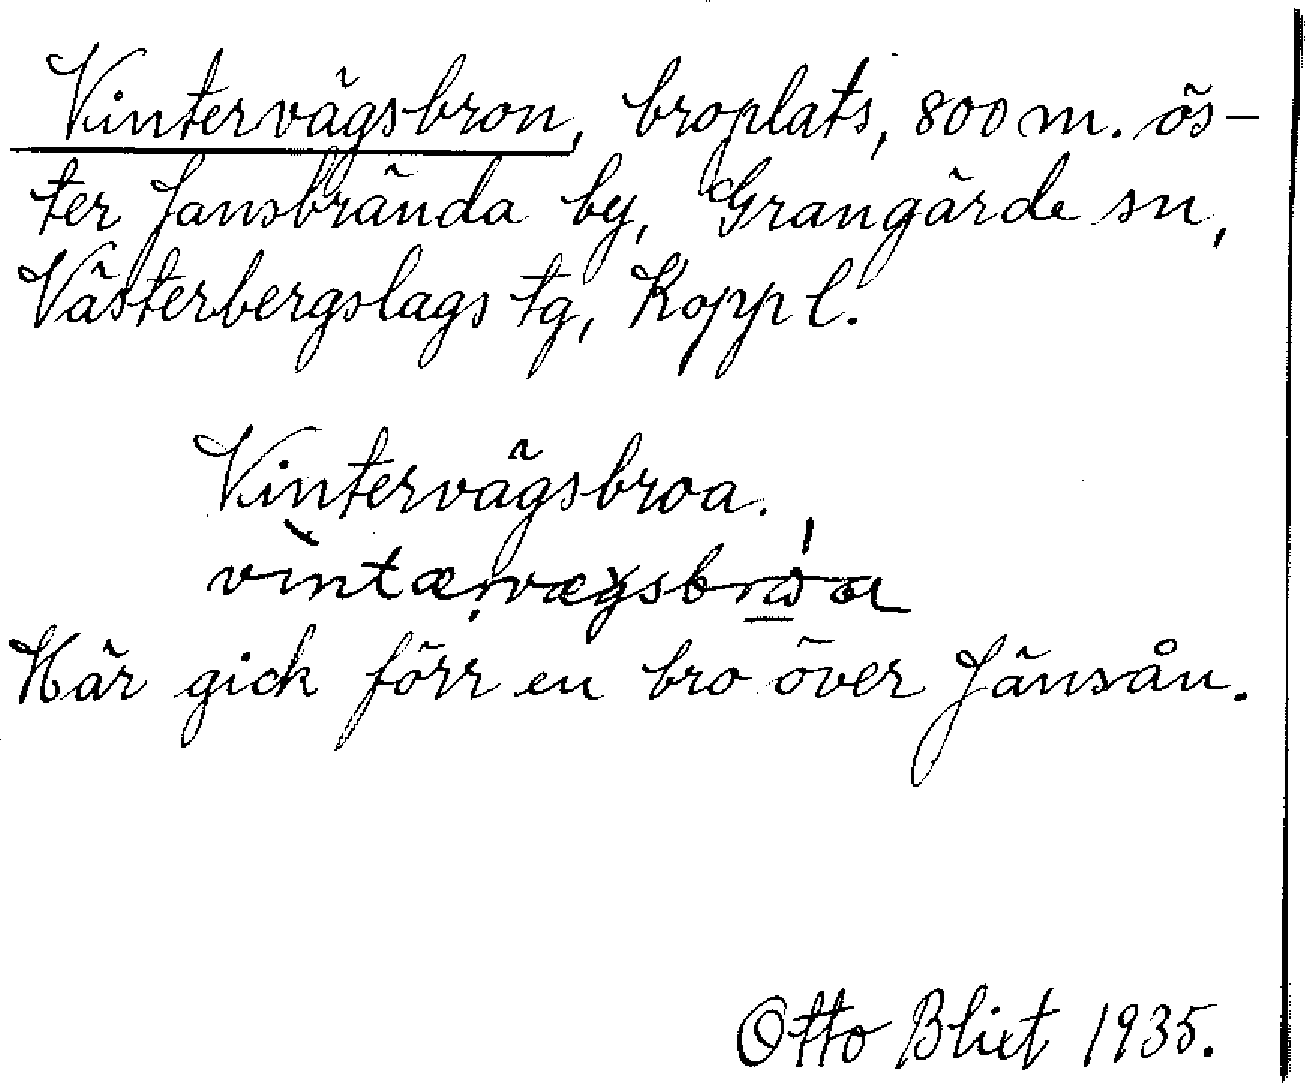 Vintervägsbron, broplats, 800 m. ös-
ter Jansbrända by, Grangärde sn,
Västerbergslags tg, Kopp l.
Vintervägsbroa.
Här gick förr en bro över Jänsån.
Otto Blixt 1935.